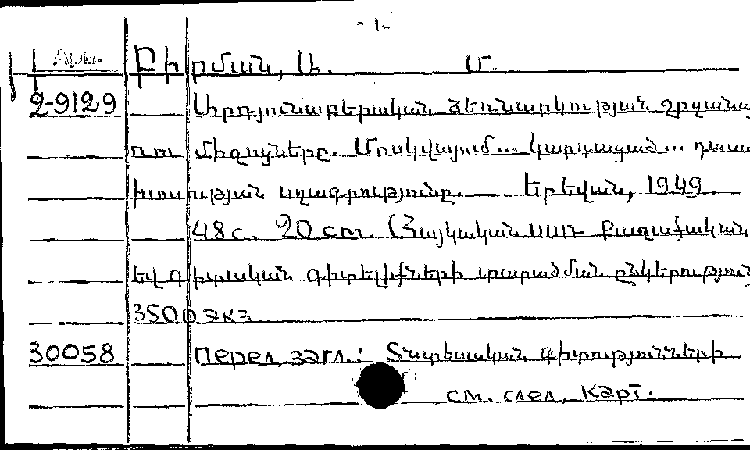 - 1 -
Բիրման, Ա. Մ.
2-9129 Արդյունաբերական ձեռնարկության շրջանա
ռու միջոցները. Մոսկվայում... կարդացած... դասա
խոսության սղագրությունը. Երեվան, 1949.
48 с. 20 cm. (Հայկական ՍՍՌ Քաղաքական
եվ գիտական գիտելիքների տարածման ընկերություն
3500 экз
30058 Перед загл.: Տնտեսական գիտությունների
см. след. карт.